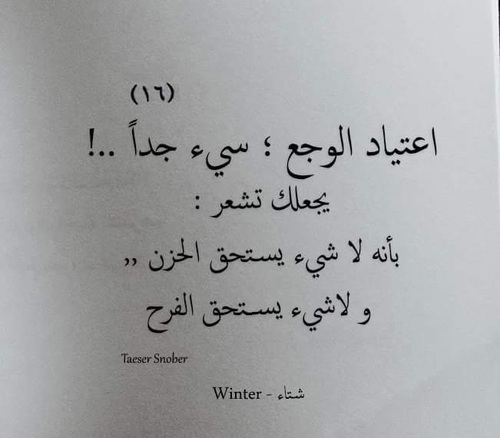 (١٦)
اعتياد الوجع ؛ سيء جداً ..!
يجعلك تشعر :
بأنه لا شيء يستحق الحزن ,,
و لاشيء يستحق الفرح
Taeser Snober
شتاء - Winter